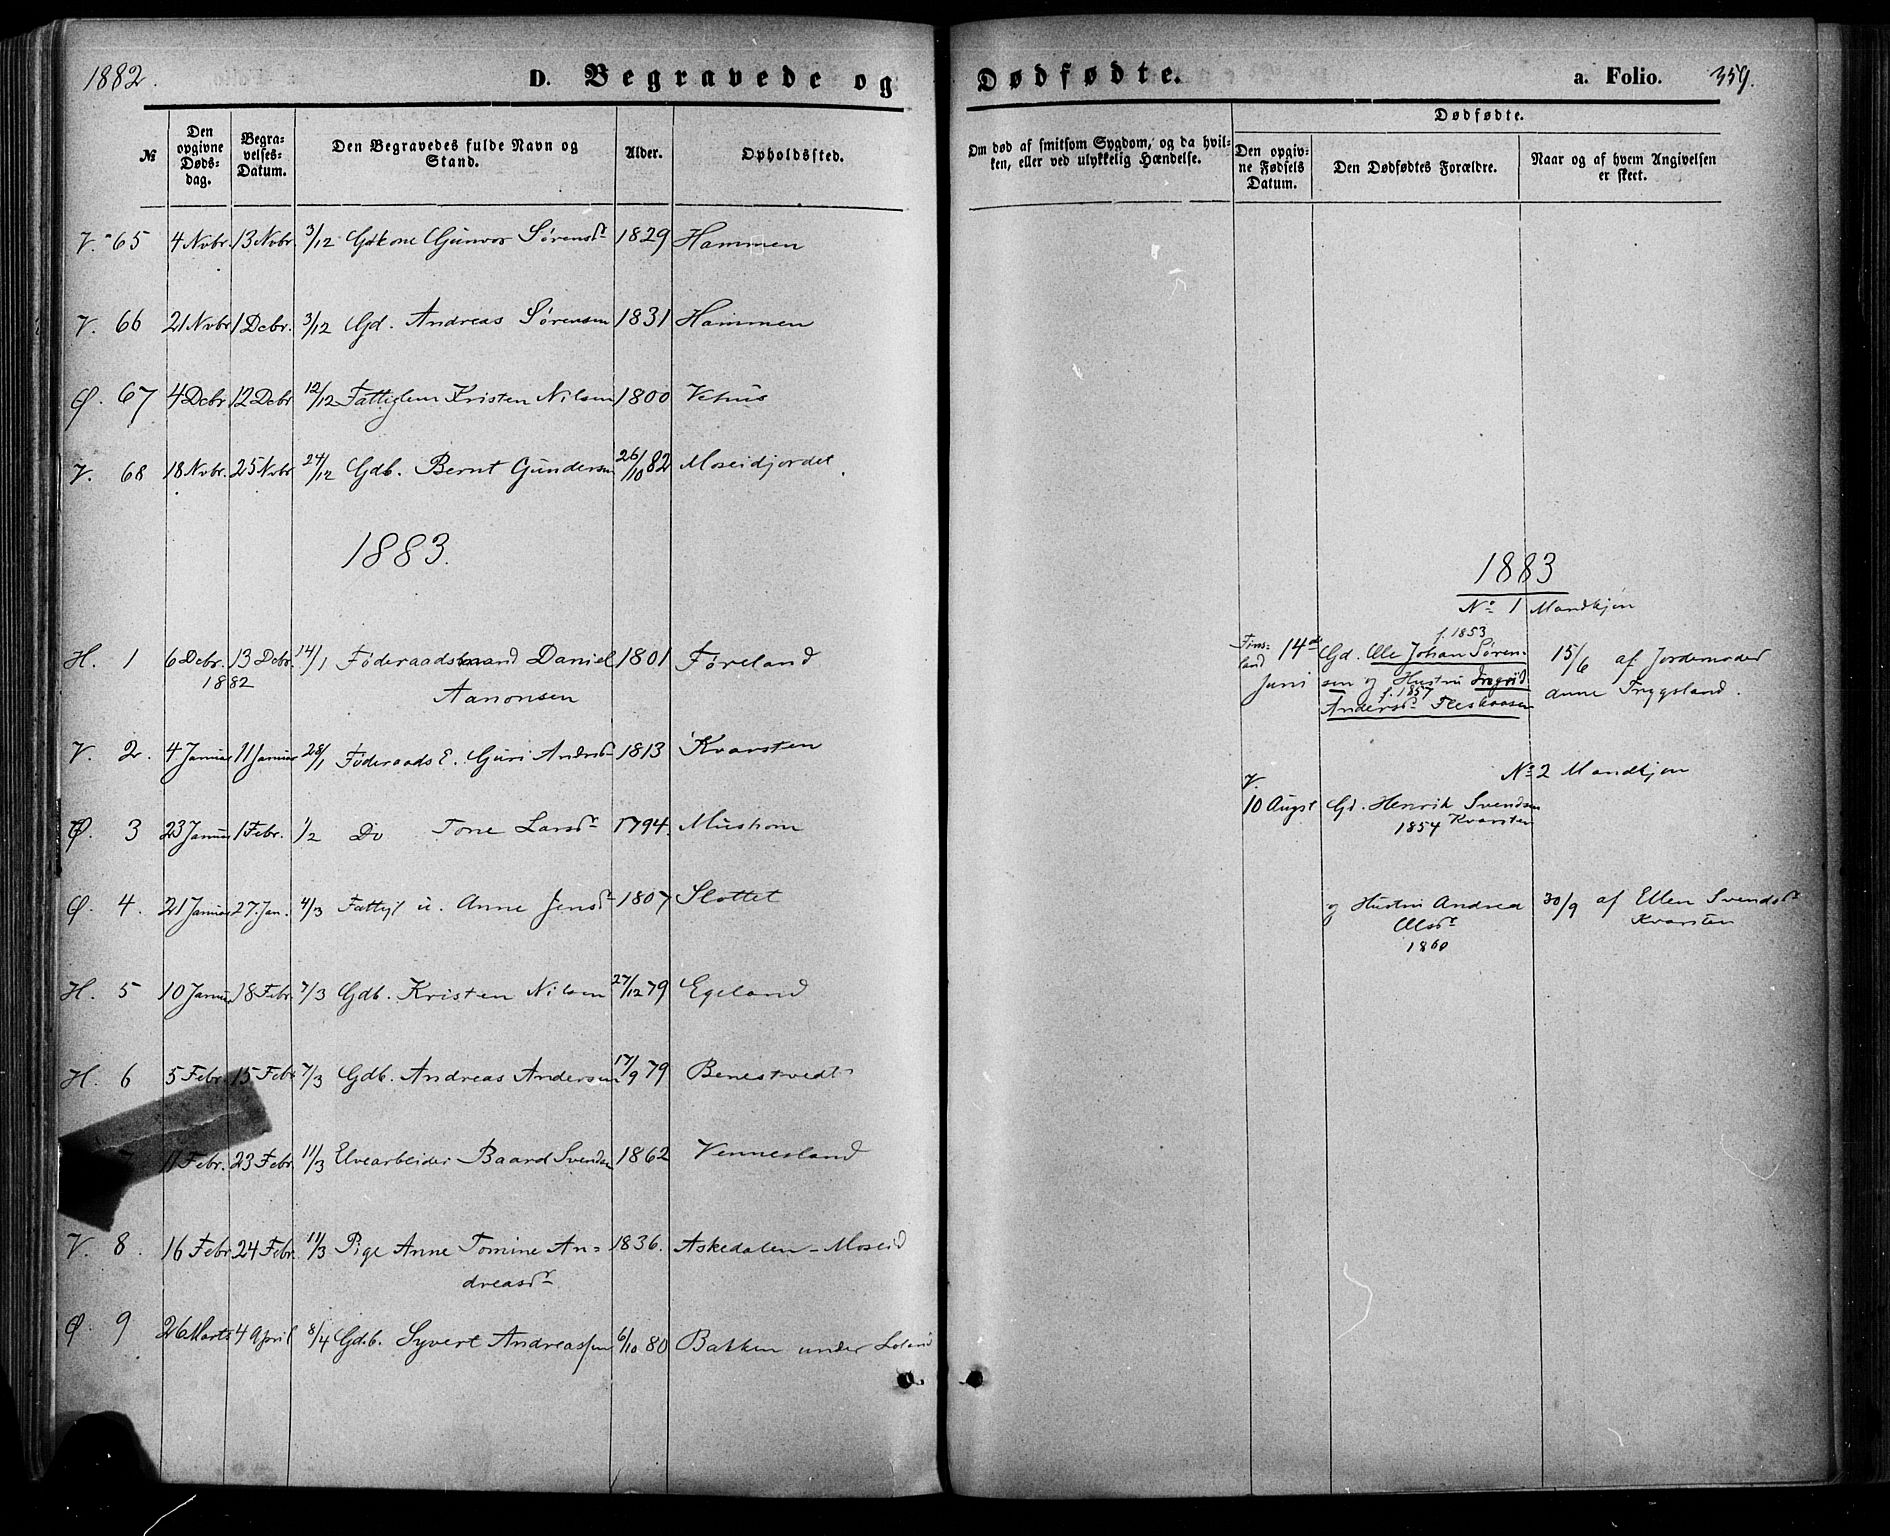 1882.
D. Begravede og
№
Den opgivne Døds-dag.
Begra-velses-Datum.
Den Begravedes fulde Navn og Stand.
Alder.
Opholdssted.
V. 65 4 Nvbr. 13 Nvbr. 3/12 Gdkone Gunvor Sørensdr 1829 Hammen
V. 66 21 Nvbr 1 Dcbr. 3/12 Gd. Andreas Sørensen 1831 Hammen
Ø. 67 4 Dcbr 12 Dcbr 12/12 Fattiglem Kristen Nilsen 1800 Vehus
V. 68 18 Nvbr. 25 Nvbr 24/12 Gdb. Bernt Gundersen 26/10 82 Moseidjordet.
1883.
H. 1 6 Dcbr. 13 Dcbr. 14/1 Föderaadsmand Daniel 1801 Føreland
1882 Aanonsen
V. 2. 4 Januar 11 Januar 28/1 Föderaads E. Guri Andrsdr 1813 Kvarsten
Ø. 3 23 Januar 1 Febr. 1/2 Do Tone Larsdr 1794. Mushom
Ø. 4. 21 Januar 27. Jan. 4/3 Fattigl u. Anne Jensdr 1807 Slottet
H. 5 10 Januar 18 Febr. 7/3 Gdb. Kristen Nilsen 27/12 79 Egeland
H. 6 5 Febr. 15 Feb. 7/3 Gdb. Andreas Andersen 17/9 79 Benestvedt
7 11 Febr. 23 Febr. 11/3 Elvearbeider Baard Svendsen 1862 Vennesland
V. 8. 16 Febr 24 Febr. 11/3 Pige Anne Tomine An= 1836. Askedalen - Moseid
dreasdr
Ø. 9 26 Marts 4 April 8/4 Gdb. Syvert Andreassen 6/10 80 Bakken under Loland
Dødfødte.
a. Folio. 359.
Om død af smitsom Sygdom, og da hvil-
ken, eller ved ulykkelig Hændelse.
Dødfødte.
Den opgiv-ne Fødsels Datum.
Den Dødfødtes Forældre.
Naar og af hvem Angivelsen er skeet.
1883
No 1 Mandkjøn
f. 1853
Finsland 14de Gd. Ole Johan Søren- 15/6 af Jordemoder
Juni sen og Hustru Ingrid Anne Tryggsland.
f. 1857
Andersdr Fleskaasen
No 2 Mandkjøn
V.
10 Augst Gd. Henrik Svendsen
1854 Kvarsten
og Hustru Andrea 30/9 af Ellen Svendsdr
Olsdr Kvarsten
1860